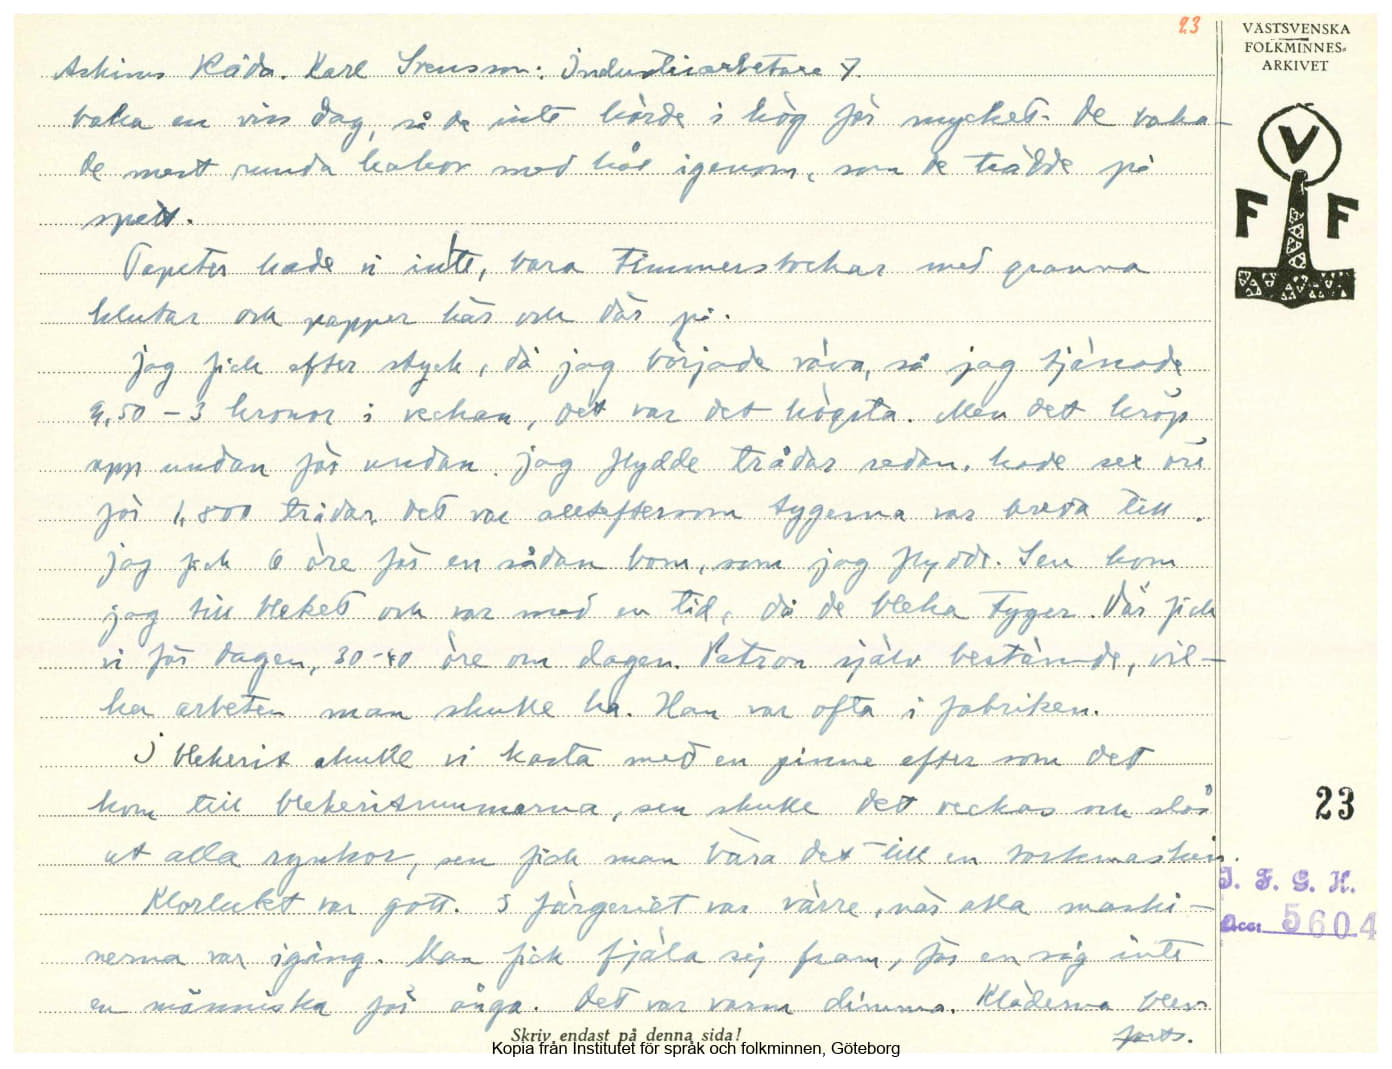 23
VÄSTSVENSKA
FOLKMINNES-
ARKIVET
V
F F
Askims Råda. Karl Svensson: Industriarbetare 7.
baka en viss dag, så de inte hörde i hög för mycket. De baka-
de mest runda kakor med hål igenom, som de trädde på
spett.
Tapeter hade vi inte, bara timmerstockar med granna
klutar och papper här och där på.
Jag fick efter styck, då jag började väva, så jag tjänade
2,50 - 3 kronor i veckan, det var det högsta. Men det kröp
upp undan för undan. Jag flydde trådar sedan, hade sex öre
för 1,800 trådar, det var allteftersom tygerna var breda till.
Jag fick 6 öre för en sådan bom, som jag flydde. Sen kom
jag till bleket och var med en tid, då de bleka tyger. Där fick
vi för dagen, 30-40 öre om dagen. Patron själv bestämde, vil-
ka arbeten man skulle ha. Han var ofta i fabriken.
I blekerit skulle vi kasta med en pinne efter som det
kom till blekeritrummerna, sen skulle det veckas och slås
ut alla rynkor, sen fick man bära det till en torkmaskin.
Klorlukt var gott. I färgeriet var värre, när alla maski-
nerna var igång. Man fick fjäla sej fram, för en såg inte
en människa för ånga. Det var varm dimma. Kläderna blev
forts.
Skriv endast på denna sida!
Kopia från Institutet för språk och folkminnen, Göteborg
23
I. F. G. H.
Acc: 5604